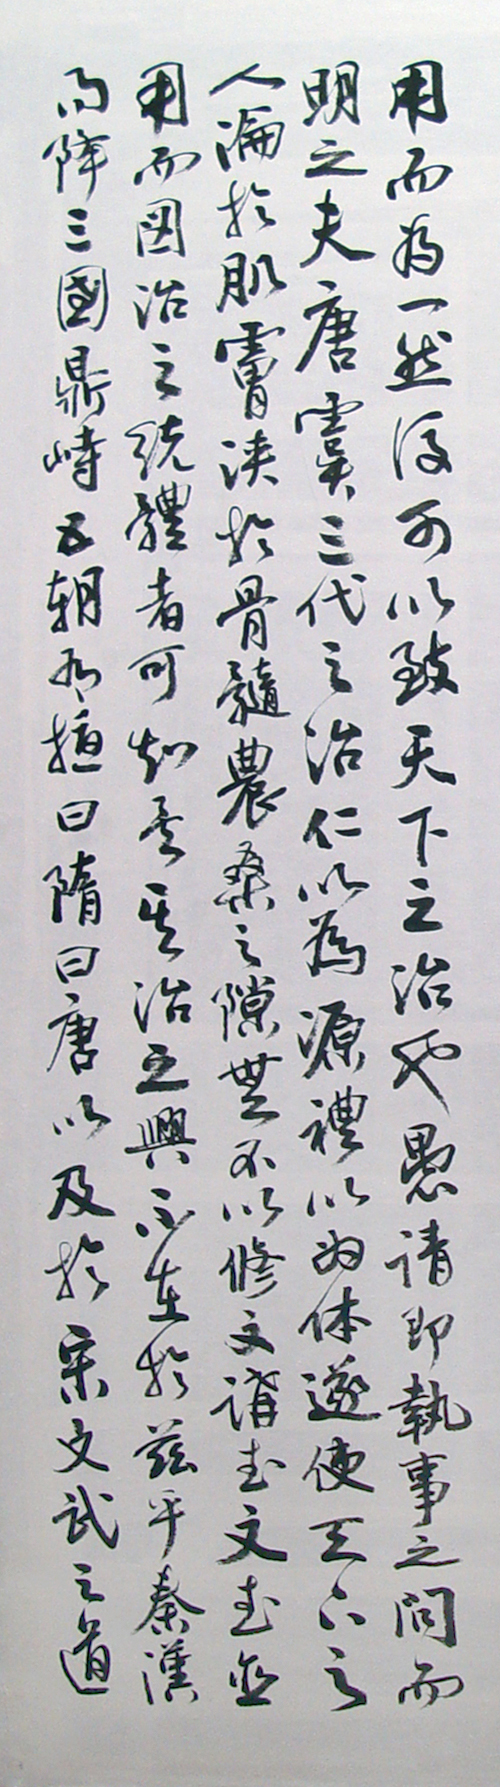 用而為一然後可以致天下之治也愚請即執事之問而
明之夫唐虞三代之治仁以為源禮以為体遂使天下之
人淪於肌膚浹於骨髓農桑之隙無不以修文講武文武並
用而図治之統體者可知矣其治之興不在於茲乎秦漢
而降三國鼎峙五朝(幷)擅曰隋曰唐以及於宋文武之道